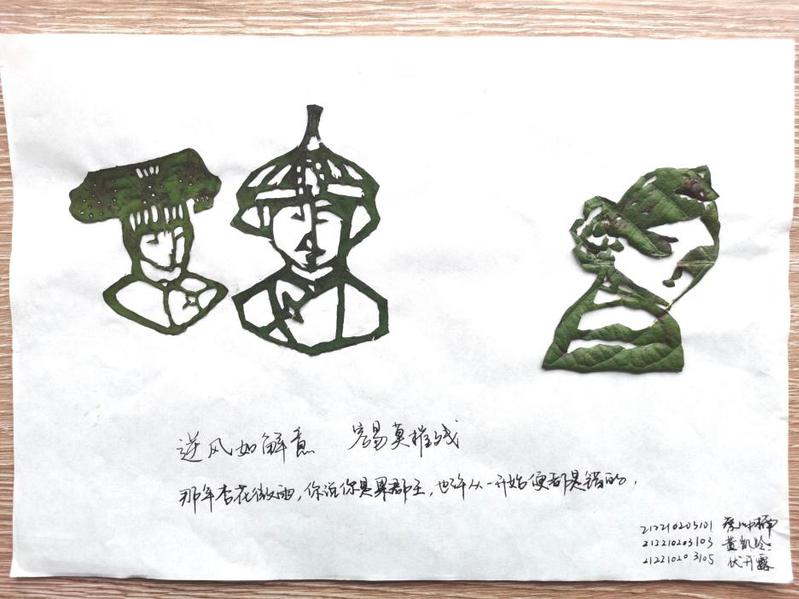 逆风如解意 容易莫摧残
那年杏花微雨,你说你是果郡王,也许从一开始便都是错的.
212210203101
212210203103 黄凯玲
212210203105 伏开露